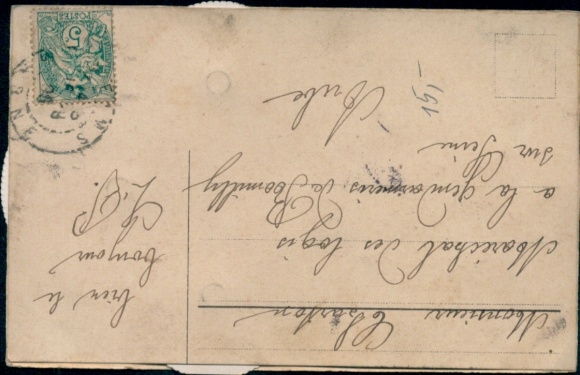 bien le
bonjour
L. P.
Monsieur Charton
Maréchal des logis
a la gendarmerie de Romilly
sur Seine
Aube
15,-
5
POSTES